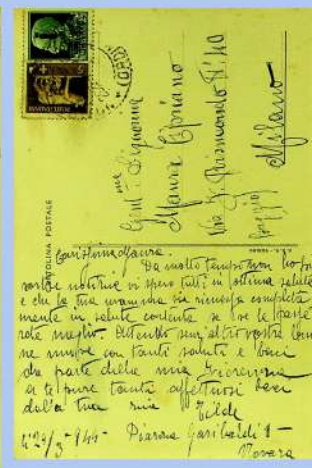 Gent: ma Signorina
Maura Cipriano
Via F. N. 40
Milano
CARTOLINA POSTALE
Carissima Maura.
Da molto tempo non ho più
vostre notizie vi spero tutti in ottima salute
e che la tua mamma sia rimessa completa
mente in salute contenta se se le farete
meglio. Attendo senz'altro vostre buo
ne nuove con tanti saluti e baci
da parte della mia
a te pure tanti affettuosi baci
dalla tua
Tilde
li 23/3-944- Piazza Garibaldi 8-
Novara